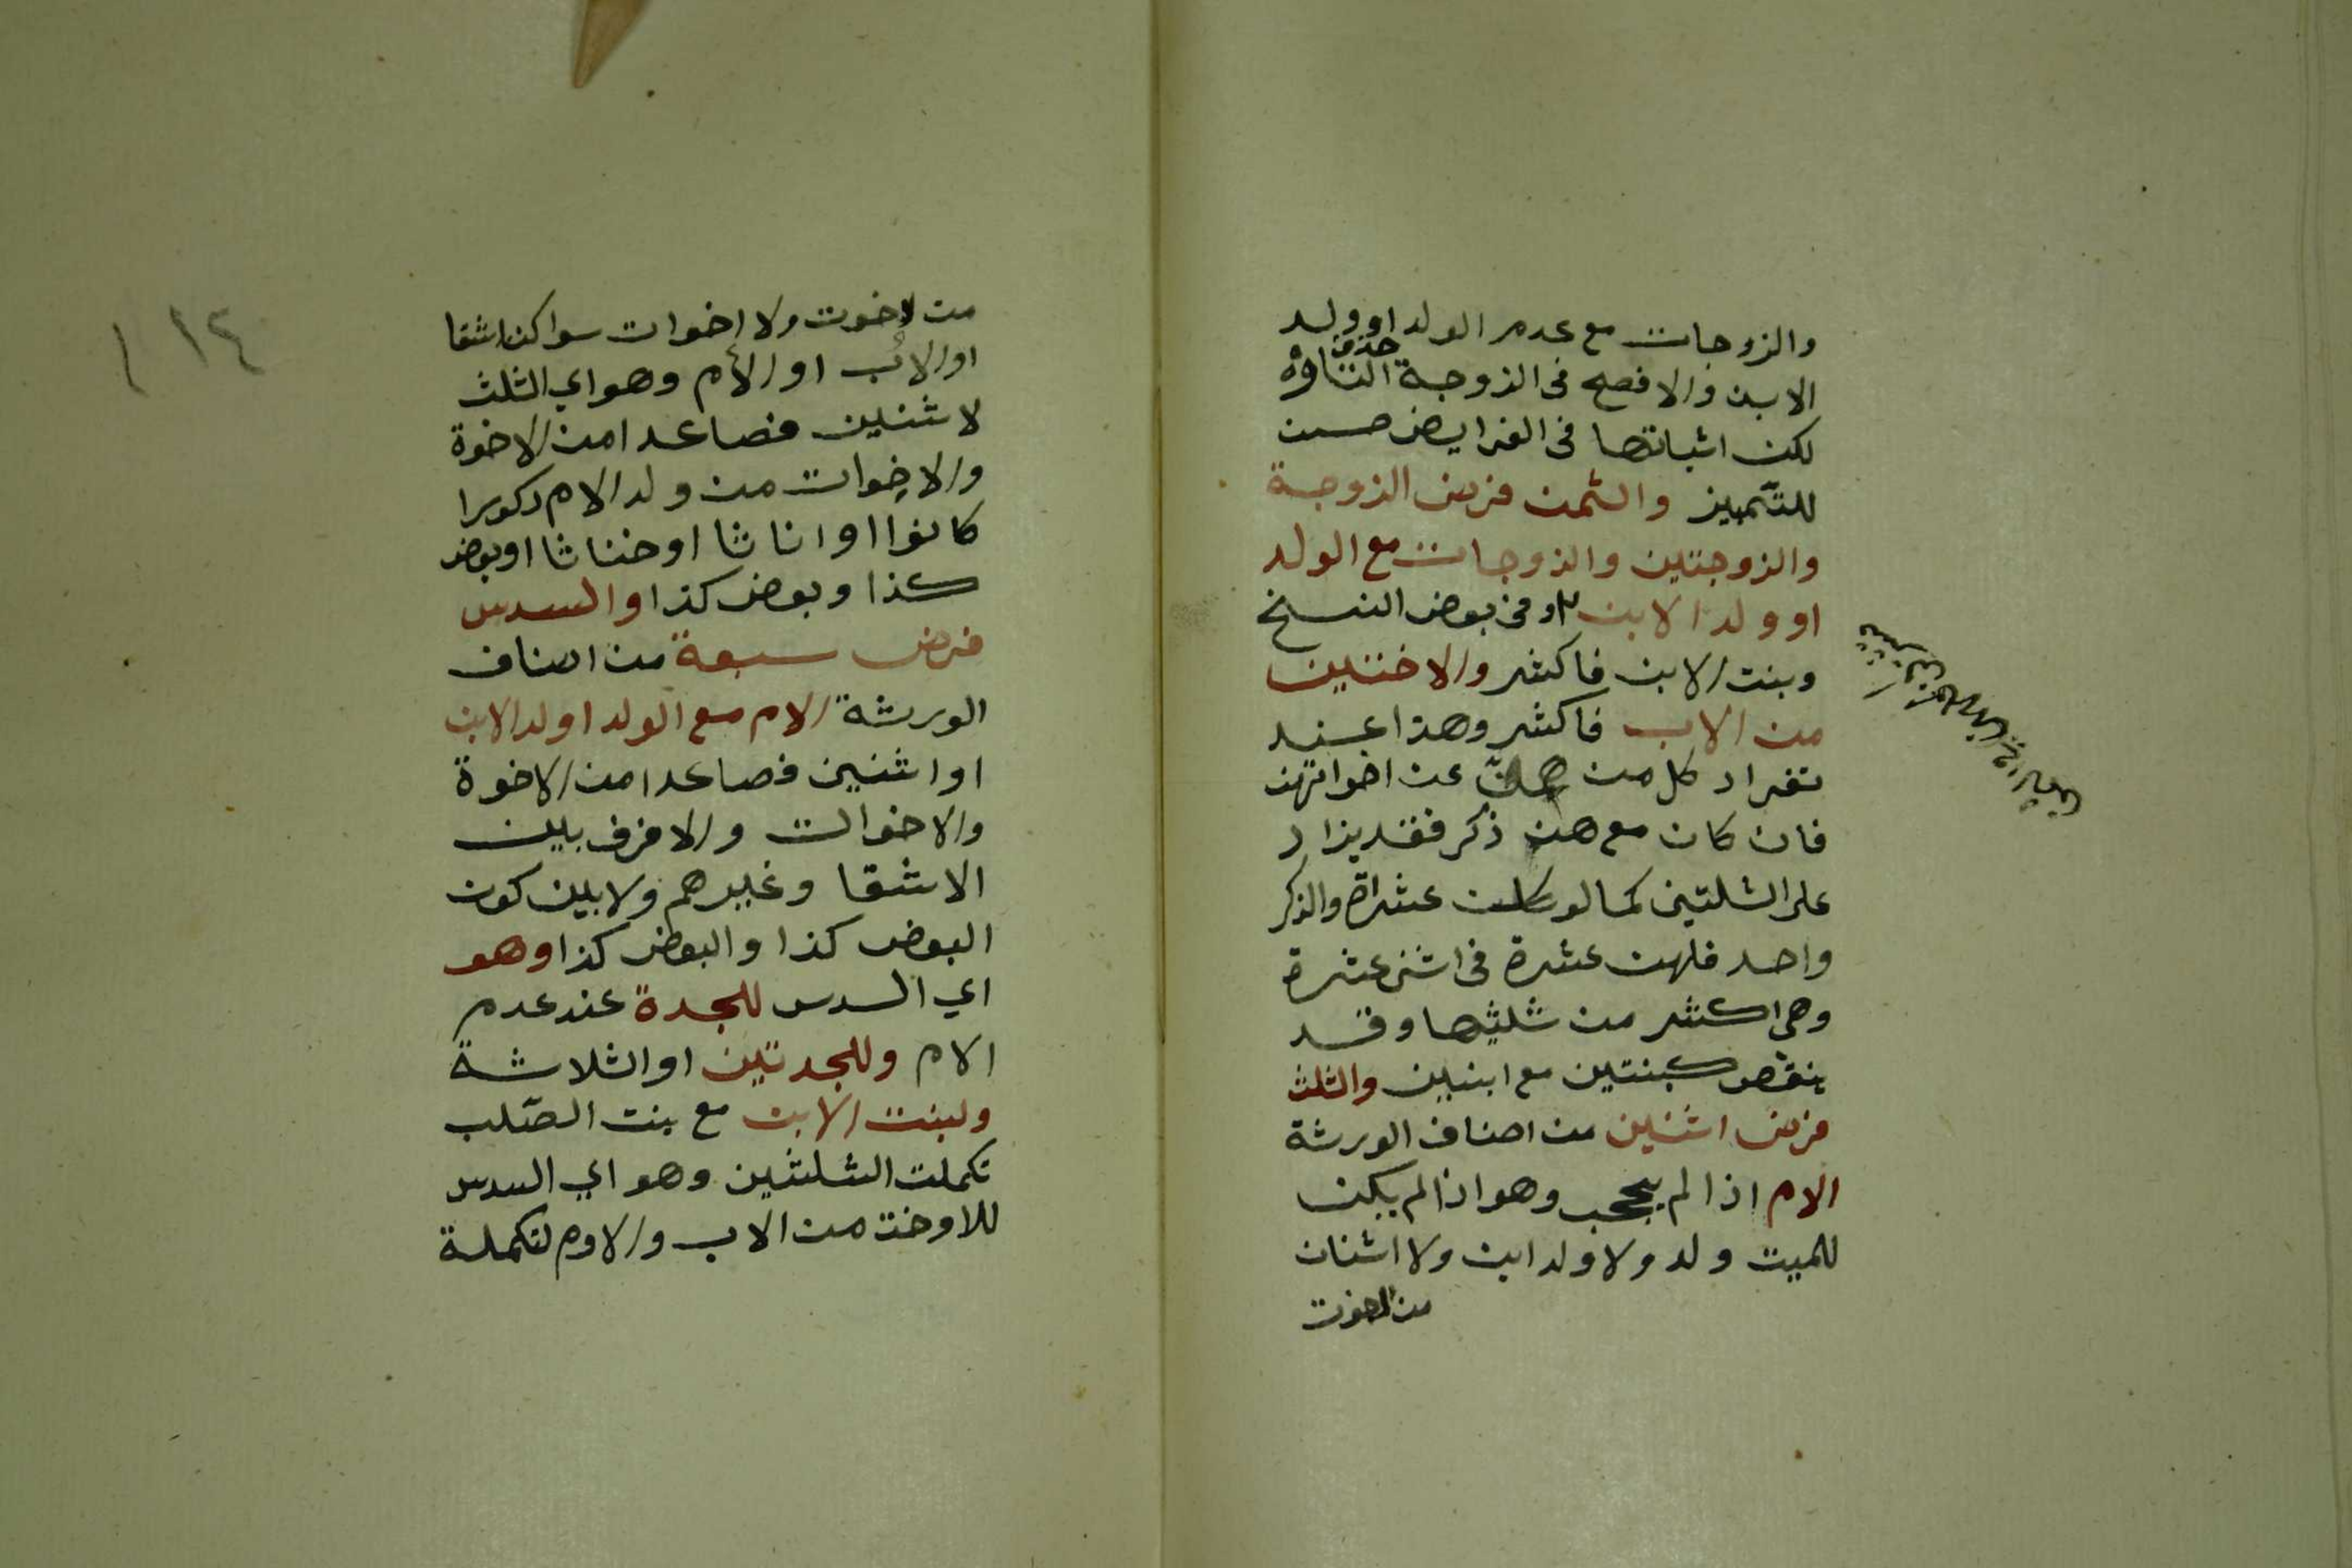 والزوجات مع عدم الولد او ولد
الابن والافصح فى الزوجة حذف التاوه
لكن اثباتها فى الفرايض حسن
للتمييز والثمن فرض الزوجة
والزوجتين والزوجات مع الولد
او ولد الابن وفى بعض النسخ
وبنت الابن فاكثر والاختين
من الاب فاكثر وهذا عند
تفراد كل من هن عن اخواتهن
فان كان مع هن ذكر فقد يزاد
على الثلثين كما لو كانت عشراة والذكر
واحد فلهن عشرة فى اثنى عشرة
وهى اكثر من ثلثيها وقد
ينقص كبنتين مع ابنين والثلث
فرض اثنين من اصناف الورثة
الام اذا لم يحجب وهو اذا لم يكن
للميت ولد ولا ولد ابن ولا اثنان
من الاخوت
١٢٤
من لاخوت ولا اخوات سوا كن اشقا
او الاب او الام وهو اي الثلث
لاثنين فصاعدا من الاخوة
والاخوات من ولد الام ذكورا
كانوا او اناثا او خناثا او بعض
كذا وبعض كذا والسدس
فرض سبعة من اصناف
الورثة الام مع الولد او لد الابن
او اثنين فصاعدا من الاخوة
والاخوالت ولا فرف بين
الاشقا وغيرهم ولا بين كون
البعض كذا والبعض كذا وهو
اي السدس للجدة عند عدم
الام وللجدتين او الثلاثة
ولبنت الابن مع بنت الصّلب
تكملت الثلثين وهو اي السدس
للاوخت من الاب والاوم لتكملة